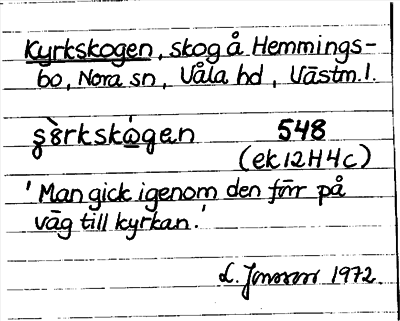 Kyrkskogen, skog å Hemmings-
bo, Nora sn, Våla hd, Västm.l.
548
(ek 12H4c)
'Man gick igenom den förr på
väg till kyrkan.'
1972